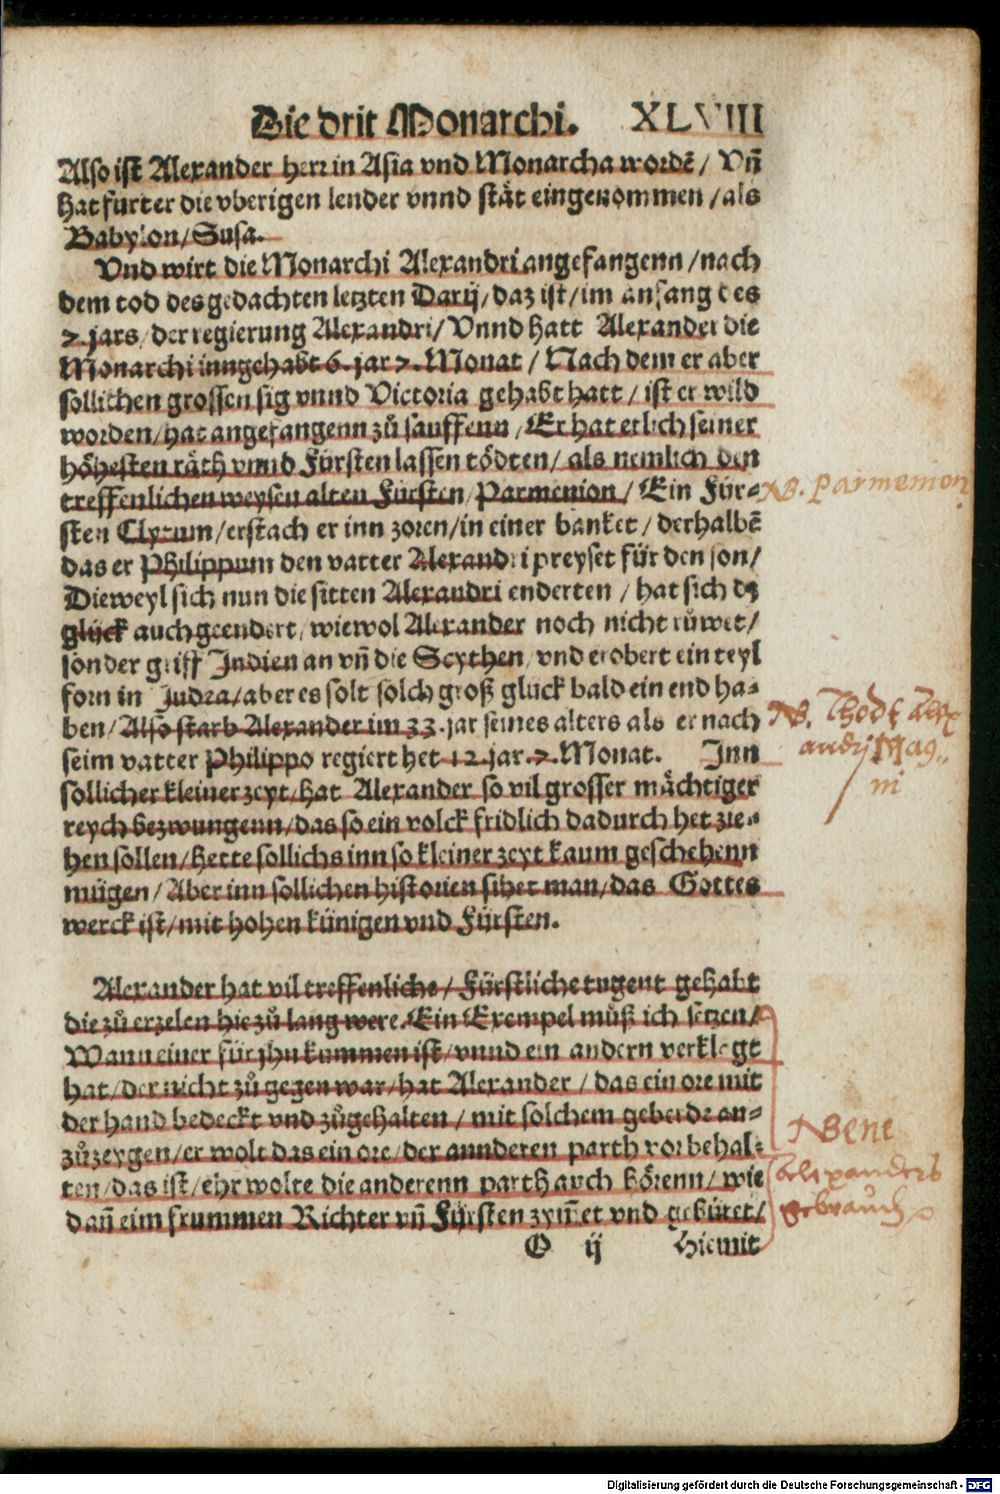 Die drit Monarchi. XLVIII
Also ist Alexander herr in Asia vnd Monarcha wordẽ / Vñ
hat furter die vberigen lender vnnd stät eingenommen / als
Babylon / Susa.
Vnd wirt die Monarchi Alexandri angefangenn / nach
dem tod des gedachten letzten Darij / daz ist / im anfang des
7. jars / der regierung Alexandri / Vnnd hatt Alexander die
Monarchi inngehabt 6. jar 7. Monat / Nach dem er aber
sollichen grossen sig vnnd Victoria gehabt hatt / ist er wild
worden / hat angefangenn zů sauffenn / Er hat etlich seiner
höhesten räth vnnd Fürsten lassen tödten / als nemlich den
treffenlichen weysen alten Fürsten / Parmenion / Ein Für-
NB. Parmenion
sten Clytum / erstach er inn zoren / in einer banket / derhalbẽ
das er Philippum den vatter Alexandri preyset für den son /
Dieweyl sich nun die sitten Alexandri enderten / hat sich dz
glück auch geendert / wiewol Alexander noch nicht růwet /
sonder griff Indien an vñ die Scythen / vnd erobert ein teyl
forn in Judea / aber es solt solch groß glück bald ein end ha-
ben / Also starb Alexander im 33. jar seines alters als er nach
NB. Thodt Alex
andrj Mag..
ni
seim vatter Philippo regiert het 12. jar. 7. Monat. Inn
sollicher kleiner zeyt / hat Alexander so vil grosser mächtiger
reych bezwungenn / das so ein volck fridlich dadurch het zie-
hen sollen / hette sollichs inn so kleiner zeyt kaum geschehenn
mügen / Aber inn sollichen historien sihet man / das Gottes
werck ist / mit hohen künigen vnd Fürsten.
Alexander hat vil treffenliche / Fürstliche tugent gehabt
die zů erzelen hie zů lang were. Ein Exempel můß ich setzen /
Wann einer für jhn kummen ist / vnnd ein andern verklagt
hat / der nicht zů gegen war / hat Alexander / das ein ore mit
der hand bedeckt vnd zůgehalten / mit solchem geberde an-
NBene
zůzeygen / er wolt das ein ore / der annderen parth vorbehal-
Alexanders
ten / das ist / ehr wolte die anderenn parth auch hörenn / wie
gebrauch
dañ eim frummen Richter vñ Fürsten zym̃et vnd gebüret /
O ij Hiemit
Digitalisierung gefördert durch die Deutsche Forschungsgemeinschaft - DFG